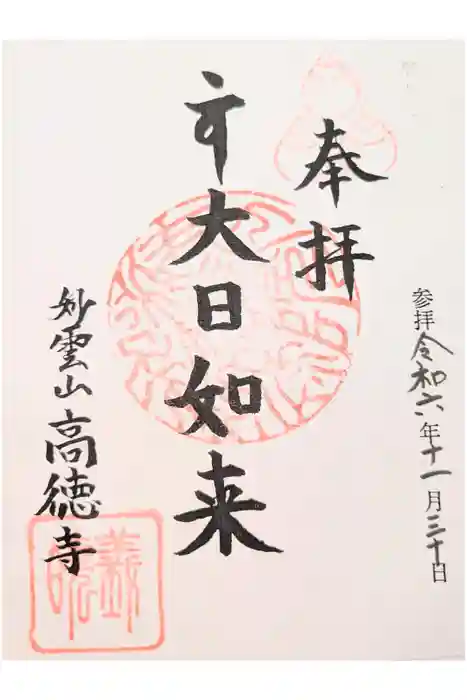 参拝 令和六年十一月三十日
奉拝
大日如来
妙雲山 高徳寺